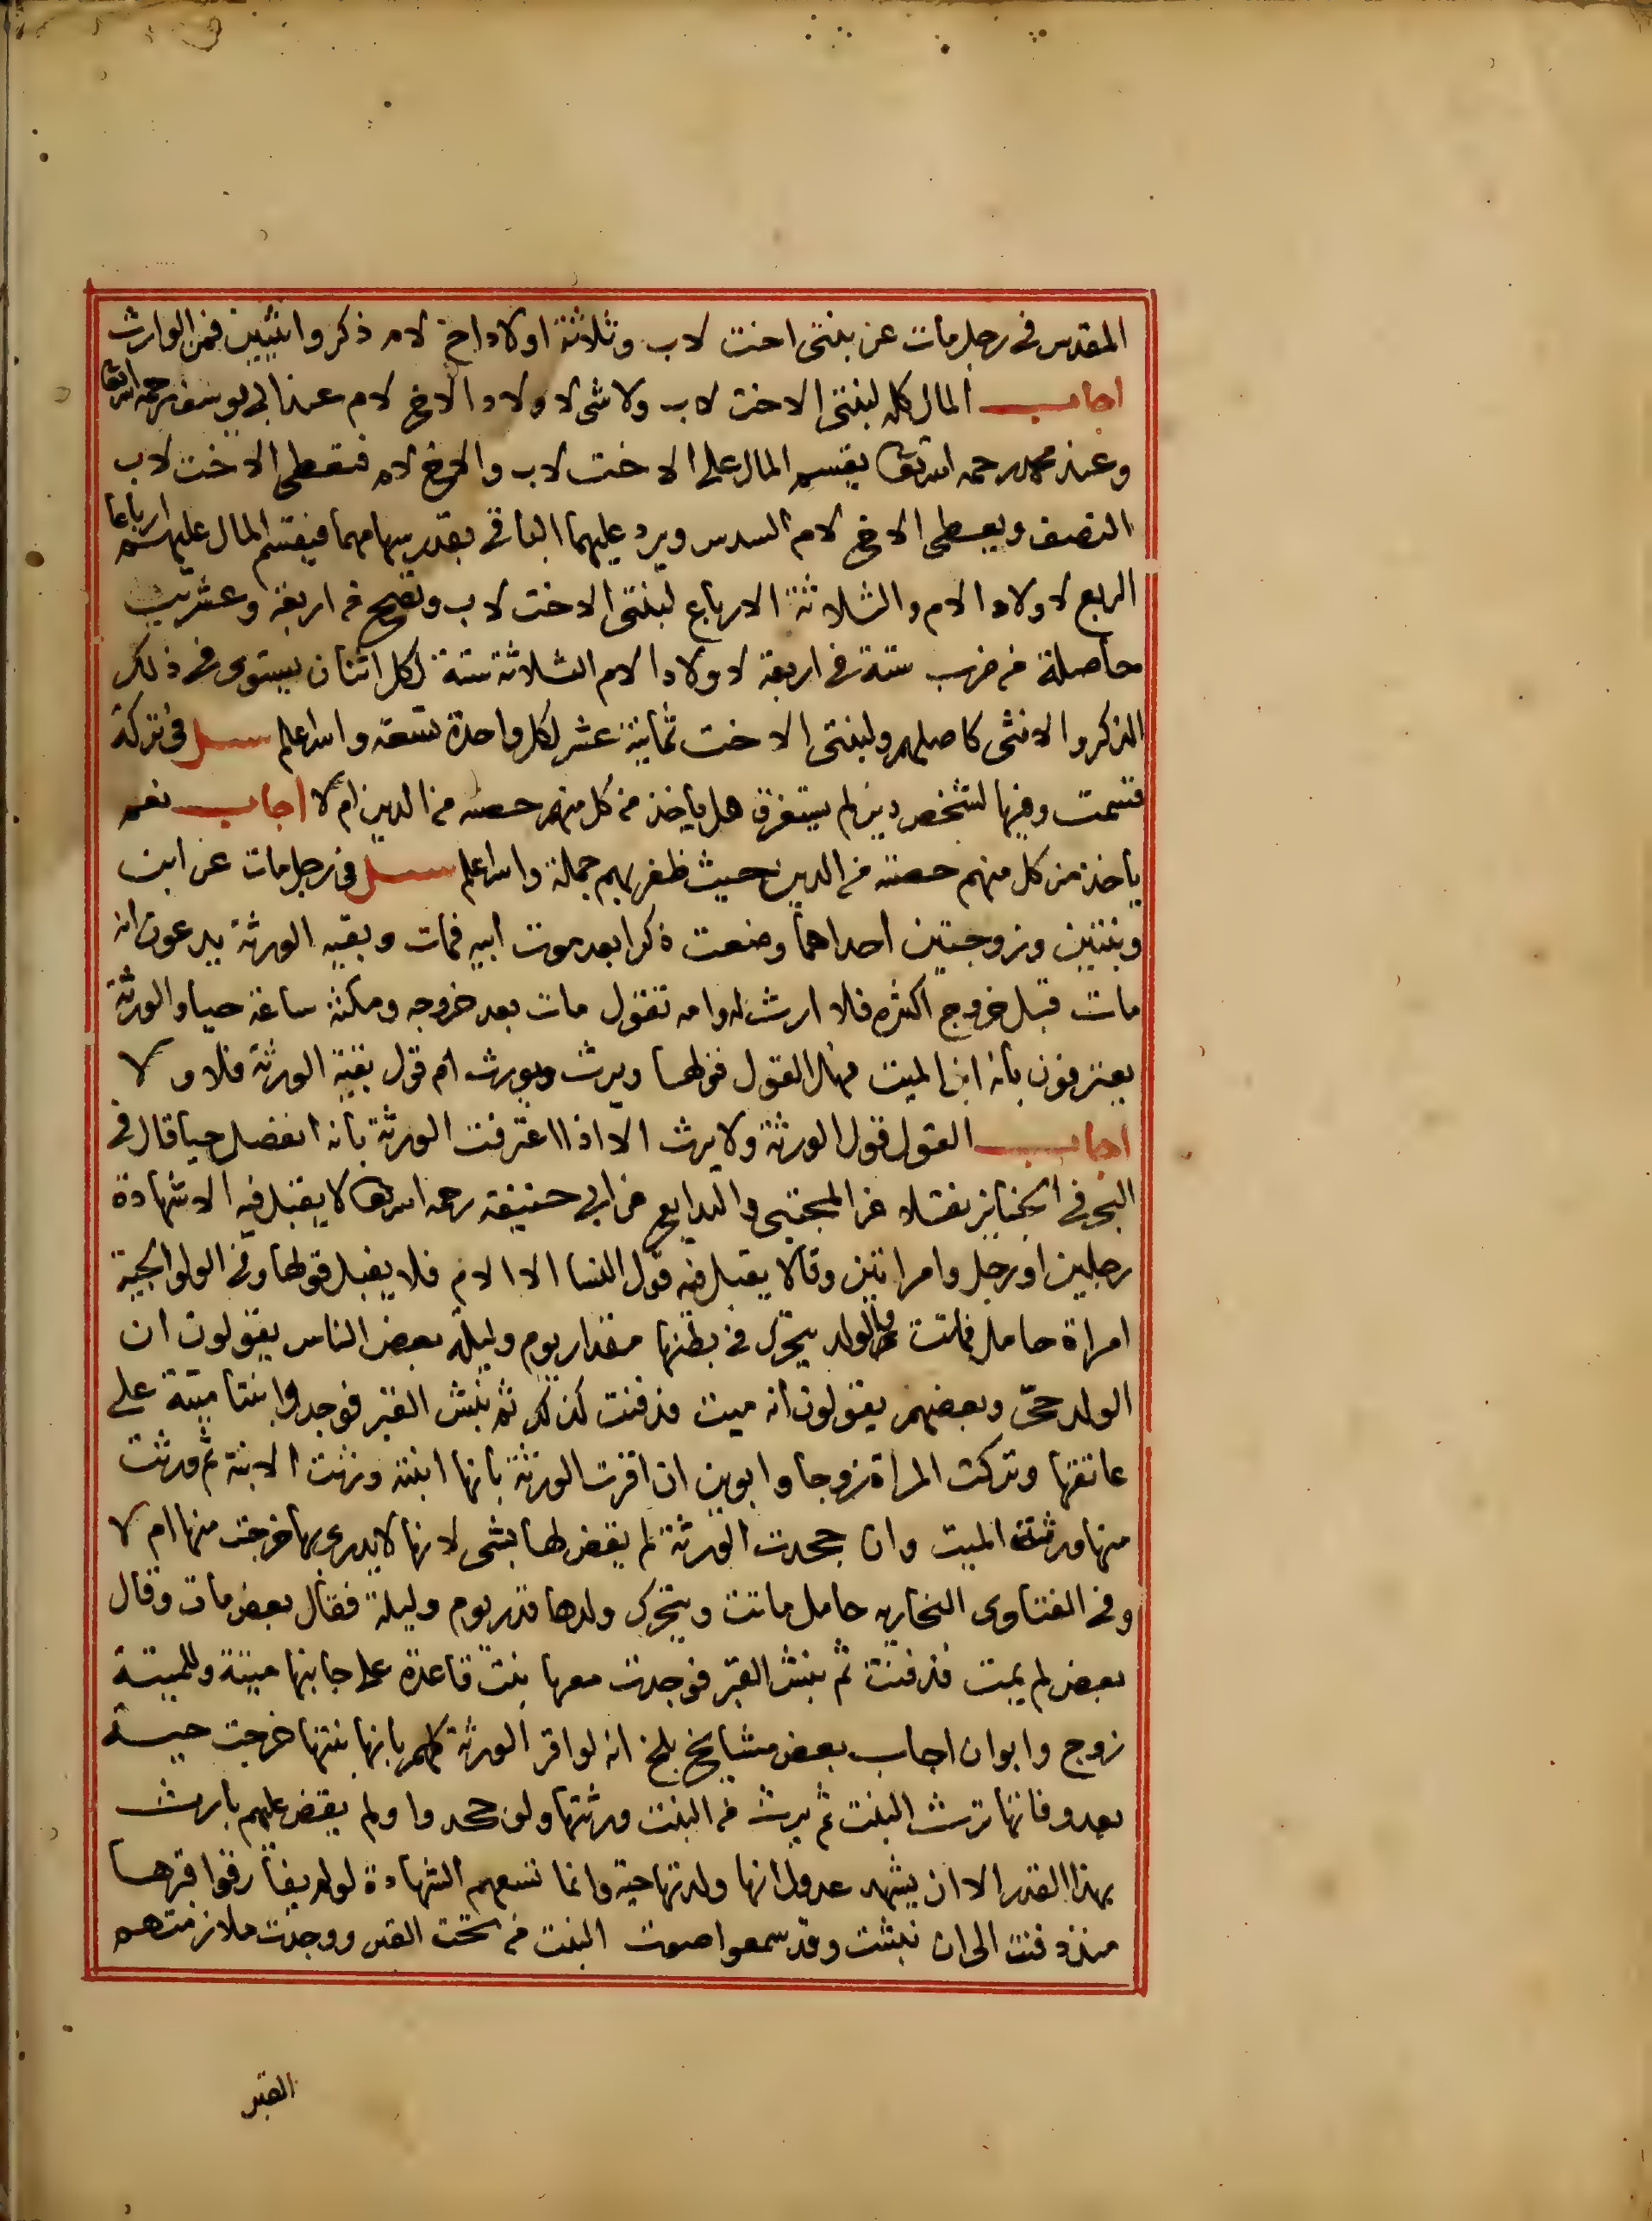 المقدس في رجل مات عن بنتى اخت لاب وثلاثة اولاد اخ لام ذكر وانثيين فمن الوارث
اجاب المال كله لبنتى الاخت لاب ولا شى لاولاد الاخ لام عند ابي يوسف رحمه الله تعا
وعند محمد رحمه الله تعا يقسم المال على الاخت لاب والاخ لام فتعطى الاخت لاب
النصف ويعطى الاخ لام السدس ويرد عليهما الباقي بقدر سهامهما فيقسم المال عليهم ارباعا
الربع لاولاد الام والثلاثة الارباع لبنتى الاخت لاب وتصح من اربعة وعشرين
حاصلة من ضرب ستة في اربعة لاولاد الام الثلاثة ستة لكل اثنان يستوى في ذلك
الذكر والانثى كاصلهم ولبنتى الاخت ثمانية عشر لكل واحدة تسعة والله اعلم سئل في تركة
قسمت وفيها لشخص دين لم يستغرق هل ياخذ من كل منهم حصته من الدين ام لا اجاب نعم
ياخذ من كل منهم حصته من الدين حيث ظفر بهم جملة والله اعلم سئل في رجل مات عن ابن
وبنتين وزوجتين احداهما وضعت ذكرا بعد موت ابيه فمات وبقيه الورثة يدعون انه
مات قبل خروج اكثره فلا ارث له وامه تقول مات بعد خروجه ومكثه ساعة حيا والورثة
يعترفون بانه ابن الميت فهل القول قولها ويرث ويورث ام قول بقية الورثة فلا ولا
اجاب القول قول الورثة ولا يرث الا اذا اعترفت الورثة بانه انفصل حيا قال في
البحر في الجنايز نقلا عن المجتبى والبدايع عن ابي حنيفة رحمه الله تعا لا يقبل فيه الا شهادة
رجلين او رجل وامراتين وقالا يقبل فيه قول النسا الا الام فلا يقبل قولها وفي الولوالجية
امراة حامل فماتت والولد يتحرك في بطنها مقدار يوم وليلة بعض الناس يقولون ان
الولد حى وبعضهم يقولون انه ميت فدفنت كذلك ثم نبش القبر فوجدوا بنتا ميتة على
عاتقها وتركت المراة زوجا وابوين ان اقرت الورثة بانها ابنته ورثت الابنة ثم ورثت
منها ورثة الميت وان جحدت الورثة لم يقض لها بشى لانها لا يدرى بها خرجت منها ام لا
وفي الفتاوى البخاريه حامل ماتت ويتحرك ولدها قدر يوم وليلة فقال بعض مات وقال
بعض لم يمت فدفنت ثم نبش القبر فوجدت معها بنت قاعدة على جانبها ميتة وللميتة
زوج وابوان اجاب بعض مشايخ بلخ انه لو اقر الورثة كلهم بانها بنتها خرجت حية
بعد وفاتها ترث البنت ثم يرث من البنت ورثتها ولو جحدوا ولم يقض عليهم بارث
بهذا القدر الا ان يشهد عدول انها ولدتها حية وانما تسعهم الشهادة لو لم يفارقوا قبرها
منذ دفنت الى ان نبشت وقد سمعوا صوت البنت من تحت القبر ووجدت ملازمتهم
القبر